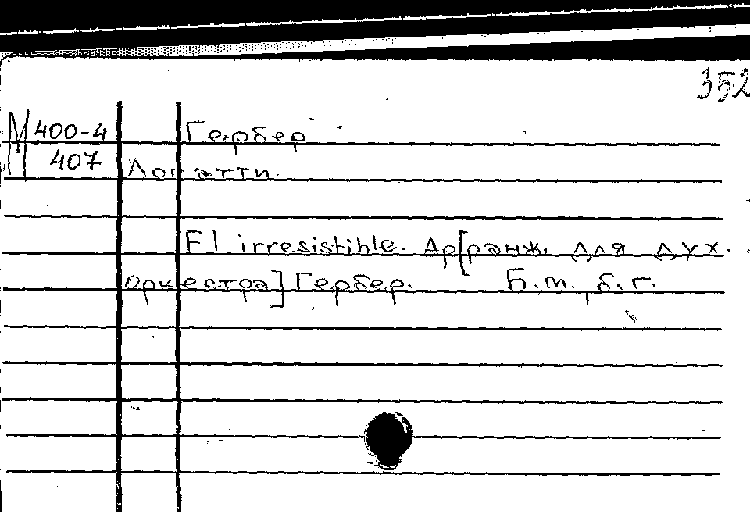 352
М 400-4
407
Гербер
Логатти.
El irresistible. Ар[ранж. для дух.
оркестра] Гербер. Б.м., б.г.